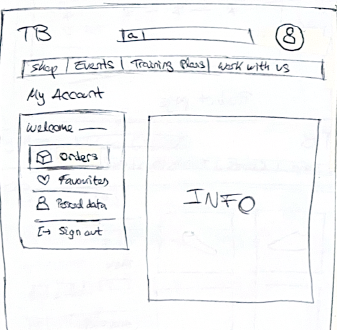 TB
Shop | Events | Training Plans | Work with us
My Account
Welcome
Orders
Favourites
Sign out
INFO